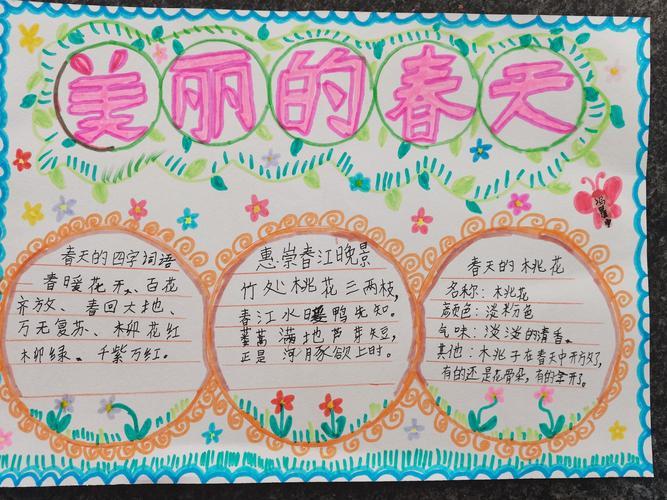 美丽的春天
春天的四字词语
春暖花开、百花
齐放、春回大地、
万无复苏、柳花红
柳绿、千紫万红。
惠崇春江晚景
竹处桃花三两枝,
春江水暖鸭先知。
蒌蒿满地芦芽短,
正是河豚欲上时。
春天的桃花
名称:桃花
颜色:淡粉色
气味:淡淡的清香。
其他:桃子在春天中开放了,
有的还是花骨朵,有的全开了。